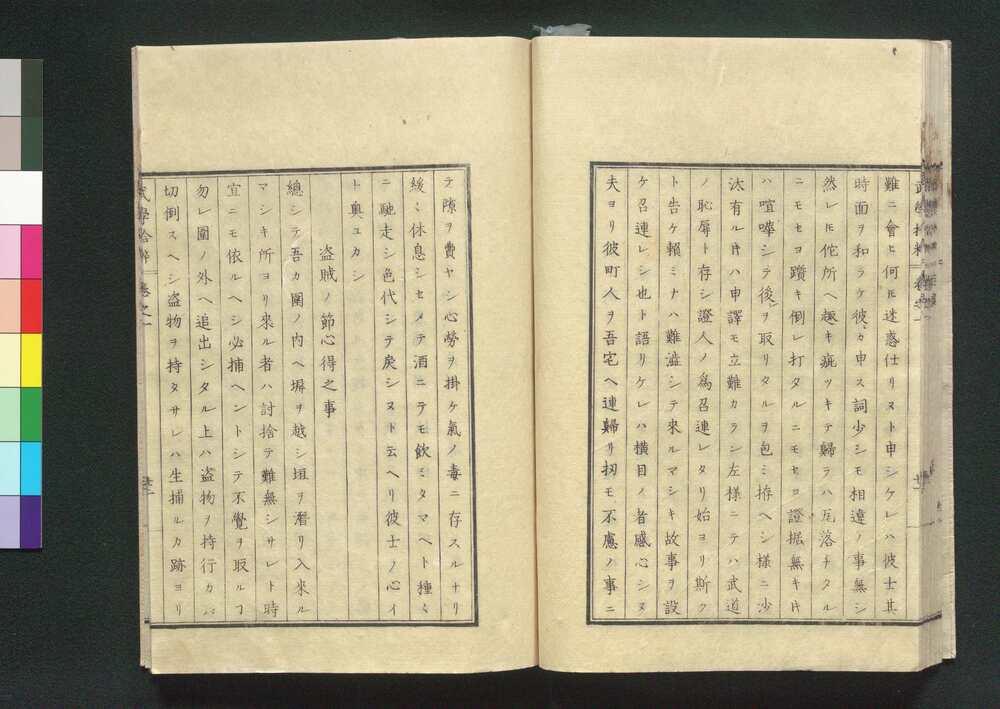 難ニ會ヒ何𪜈迷惑仕リヌト申シケレハ彼士其
時面ヲ和ラケ彼カ申ス詞少シモ相違ノ事無シ
然レ𪜈佗所ヘ趣キ疵ツキテ歸ラハ瓦落チタル
ニモセヨ躓キ倒レ打タルニモセヨ證据無キ片
ハ喧嘩シテ後ヲ取リタルヲ包ミ拵ヘシ様ニ沙
汰有ル片ハ申譯モ立難カラン左様ニテハ武道
ノ恥辱ト存シ證人ノ爲召連レタリ始ヨリ斯ク
ト告ケ頼ミナハ難澁シテ來ルマシキ故事ヲ設
ケ召連レシ也ト語リケレハ横目ノ者感心シヌ
夫ヨリ彼町人ヲ吾宅ヘ連歸リ扨モ不慮ノ事ニ
テ隙ヲ費ヤシ心勞ヲ掛ケ氣ノ毒ニ存スルナリ
緩〻休息シセメテ酒ニテモ飲ミタマヘト種〻
ニ馳走シ色代シテ戻シヌト云ヘリ彼士ノ心イ
ト奥ユカシ
盗賊ノ節心得之事
總シテ吾カ圍ノ内ヘ塀ヲ越シ垣ヲ潛リ入來ル
マシキ所ヨリ來ル者ハ討捨テ難無シサレト時
宜ニモ依ルヘシ必捕ヘントシテ不覺ヲ取ルヿ
勿レ圍ノ外ヘ追出シタル上ハ盗物ヲ持行カバ
切倒スヘシ盗物ヲ持タサレハ生捕ルカ跡ヨリ